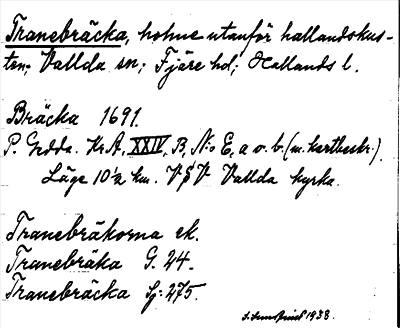 Tranebräcka, holme utanför hallandskus-
ten; Vallda sn; Fjäre hd; Hallands l.
Bräcka 1691.
P. Gedda. Kr.A, XXIV, B, N:o E, a o. b. (m. kartbeskr.)
Läge 10½ km. V§V Vallda kyrka.
Tranebräkorna ek.
Tranebräka G. 24.
Tranebräcka Sj: 275.
1938.